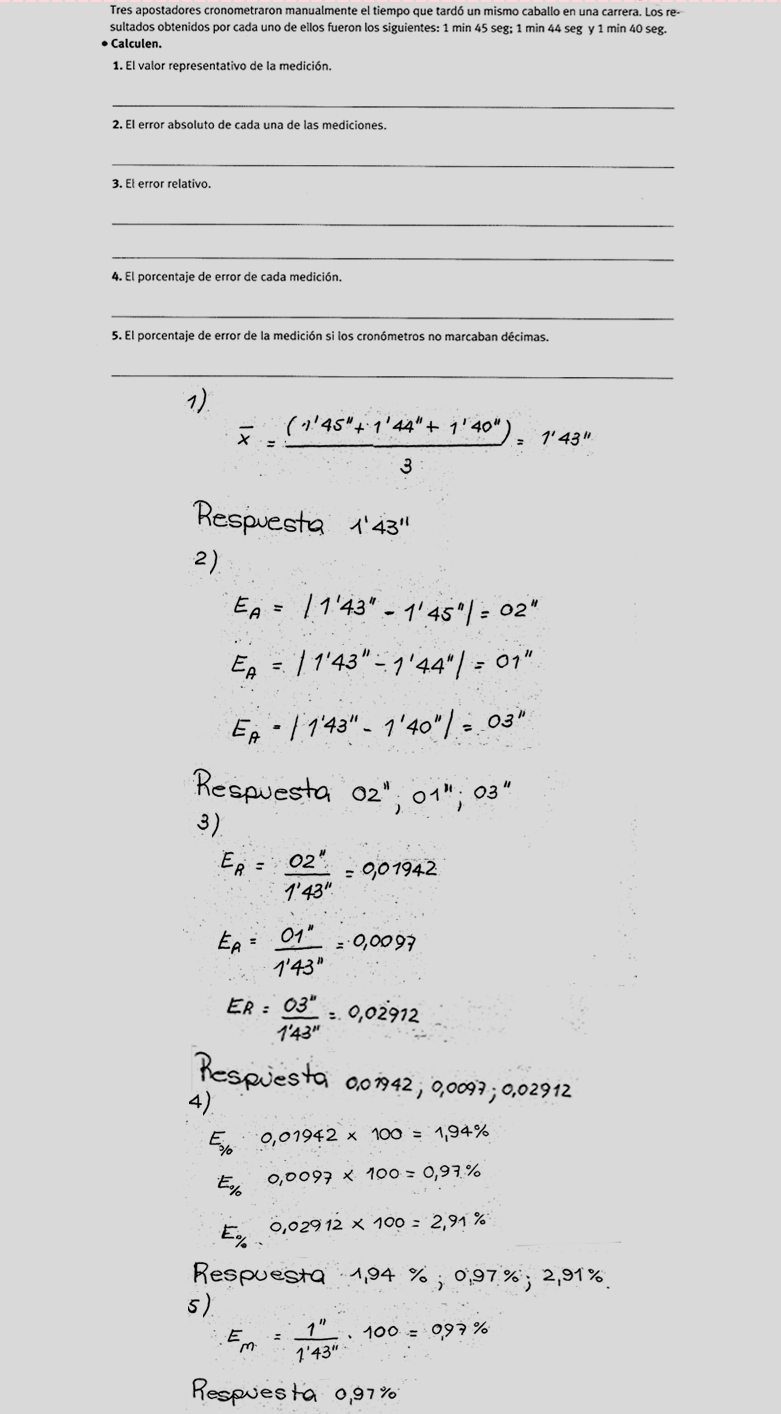 Tres apostadores cronometraron manualmente el tiempo que tardó un mismo caballo en una carrera. Los re-
sultados obtenidos por cada uno de ellos fueron los siguientes: 1 min 45 seg; 1 min 44 seg y 1 min 40 seg.
• Calculen.
1. El valor representativo de la medición.
2. El error absoluto de cada una de las mediciones.
3. El error relativo.
4. El porcentaje de error de cada medición.
5. El porcentaje de error de la medición si los cronómetros no marcaban décimas.
1)
x̄ = (1'45" + 1'44" + 1'40") / 3 = 1'43"
Respuesta 1'43"
2)
E_A = |1'43" - 1'45"| = 02"
E_A = |1'43" - 1'44"| = 01"
E_A = |1'43" - 1'40"| = 03"
Respuesta 02"; 01"; 03"
3)
E_R = 02" / 1'43" = 0,01942
E_R = 01" / 1'43" = 0,0097
ER = 03" / 1'43" = 0,02912
Respuesta 0,01942; 0,0097; 0,02912
4)
E_% 0,01942 x 100 = 1,94%
E_% 0,0097 x 100 = 0,97%
E_% 0,02912 x 100 = 2,91%
Respuesta 1,94 %; 0,97%; 2,91%
5)
E_m = 1" / 1'43" . 100 = 0,97%
Respuesta 0,97%